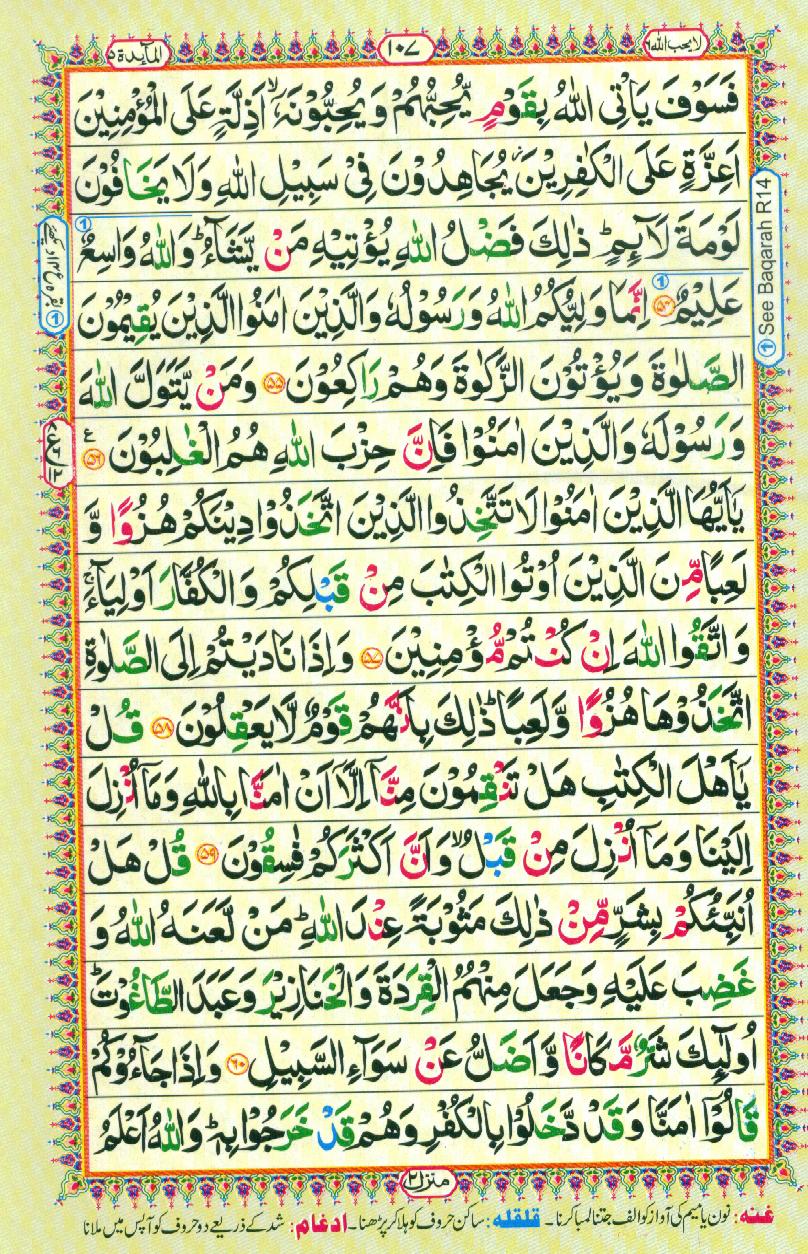 لا یحب اللہ ٦
١٠٧
المآىِٕدة ٥
فَسَوْفَ يَاْتِي اللّٰهُ بِقَوْمٍ يُّحِبُّهُمْ وَيُحِبُّوْنَهٗۤ ۙ اَذِلَّةٍ عَلَى الْمُؤْمِنِيْنَ
اَعِزَّةٍ عَلَى الْكٰفِرِيْنَ ؗ يُجَاهِدُوْنَ فِيْ سَبِيْلِ اللّٰهِ وَلَا يَخَافُوْنَ
لَوْمَةَ لَآىِٕمٍ ؕ ذٰلِكَ فَضْلُ اللّٰهِ يُؤْتِيْهِ مَنْ يَّشَآءُ ؕ وَاللّٰهُ وَاسِعٌ
عَلِيْمٌ ﴿٥٤﴾ اِنَّمَا وَلِيُّكُمُ اللّٰهُ وَرَسُوْلُهٗ وَالَّذِيْنَ اٰمَنُوا الَّذِيْنَ يُقِيْمُوْنَ
الصَّلٰوةَ وَيُؤْتُوْنَ الزَّكٰوةَ وَهُمْ رَاكِعُوْنَ ﴿٥٥﴾ وَمَنْ يَّتَوَلَّ اللّٰهَ
وَرَسُوْلَهٗ وَالَّذِيْنَ اٰمَنُوْا فَاِنَّ حِزْبَ اللّٰهِ هُمُ الْغٰلِبُوْنَ ﴿٥٦﴾ ع
يٰۤاَيُّهَا الَّذِيْنَ اٰمَنُوْا لَا تَتَّخِذُوا الَّذِيْنَ اتَّخَذُوْا دِيْنَكُمْ هُزُوًا وَّ
لَعِبًا مِّنَ الَّذِيْنَ اُوْتُوا الْكِتٰبَ مِنْ قَبْلِكُمْ وَالْكُفَّارَ اَوْلِيَآءَ ۚ
وَاتَّقُوا اللّٰهَ اِنْ كُنْتُمْ مُّؤْمِنِيْنَ ﴿٥٧﴾ وَاِذَا نَادَيْتُمْ اِلَى الصَّلٰوةِ
اتَّخَذُوْهَا هُزُوًا وَّلَعِبًا ؕ ذٰلِكَ بِاَنَّهُمْ قَوْمٌ لَّا يَعْقِلُوْنَ ﴿٥٨﴾ قُلْ
يٰۤاَهْلَ الْكِتٰبِ هَلْ تَنْقِمُوْنَ مِنَّاۤ اِلَّاۤ اَنْ اٰمَنَّا بِاللّٰهِ وَمَاۤ اُنْزِلَ
اِلَيْنَا وَمَاۤ اُنْزِلَ مِنْ قَبْلُ ۙ وَاَنَّ اَكْثَرَكُمْ فٰسِقُوْنَ ﴿٥٩﴾ قُلْ هَلْ
اُنَبِّئُكُمْ بِشَرٍّ مِّنْ ذٰلِكَ مَثُوْبَةً عِنْدَ اللّٰهِ ؕ مَنْ لَّعَنَهُ اللّٰهُ وَ
غَضِبَ عَلَيْهِ وَجَعَلَ مِنْهُمُ الْقِرَدَةَ وَالْخَنَازِيْرَ وَعَبَدَ الطَّاغُوْتَ ؕ
اُولٰٓىِٕكَ شَرٌّ مَّكَانًا وَّاَضَلُّ عَنْ سَوَآءِ السَّبِيْلِ ﴿٦٠﴾ وَاِذَا جَآءُوْكُمْ
قَالُوْۤا اٰمَنَّا وَقَدْ دَّخَلُوْا بِالْكُفْرِ وَهُمْ قَدْ خَرَجُوْا بِهٖ ؕ وَاللّٰهُ اَعْلَمُ
① See Baqarah R14
منزل ٢
غنه: نون یا میم کی آواز کو الف جتنا لمبا کرنا۔ قلقله: ساکن حروف کو ہلا کر پڑھنا۔ ادغام: شد کے ذریعے دو حروف کو آپس میں ملانا